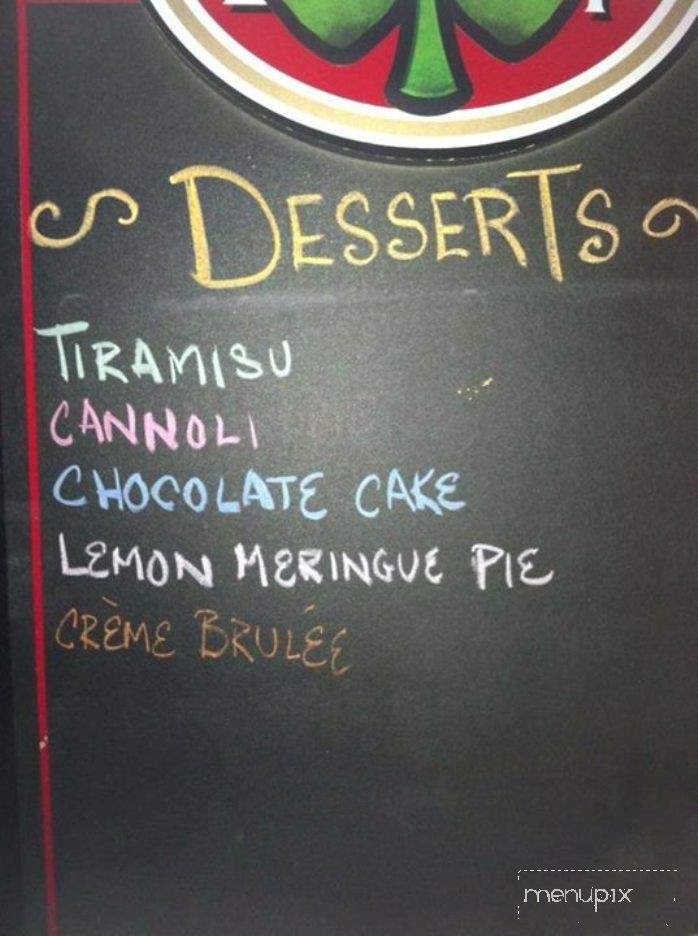 DESSERTS
TIRAMISU
CANNOLI
CHOCOLATE CAKE
LEMON MERINGUE PIE
CRÈME BRULÉE
menupix